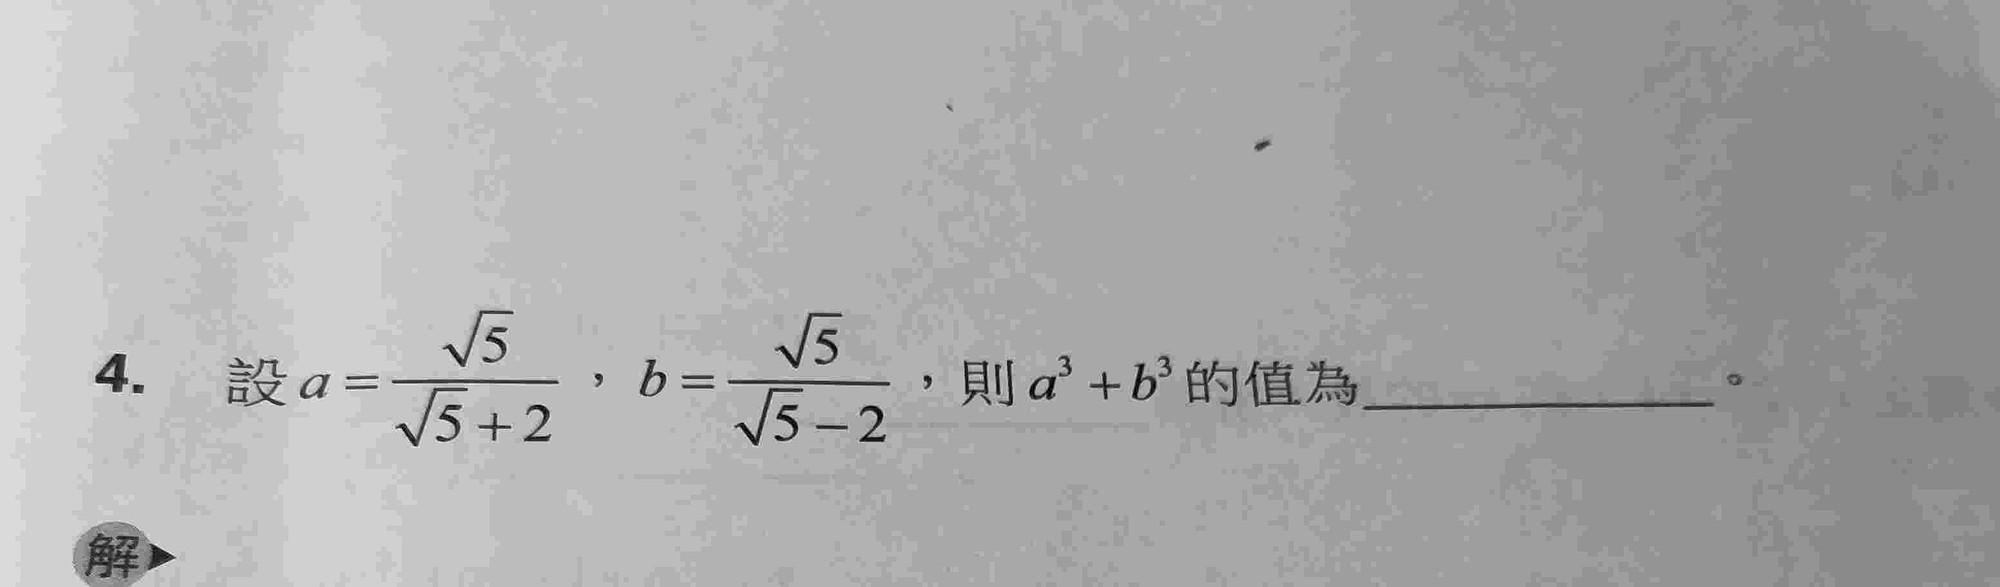 4. 設 a = \frac{\sqrt{5}}{\sqrt{5}+2} ， b = \frac{\sqrt{5}}{\sqrt{5}-2} ，則 a³ + b³ 的值為__________。
解▶